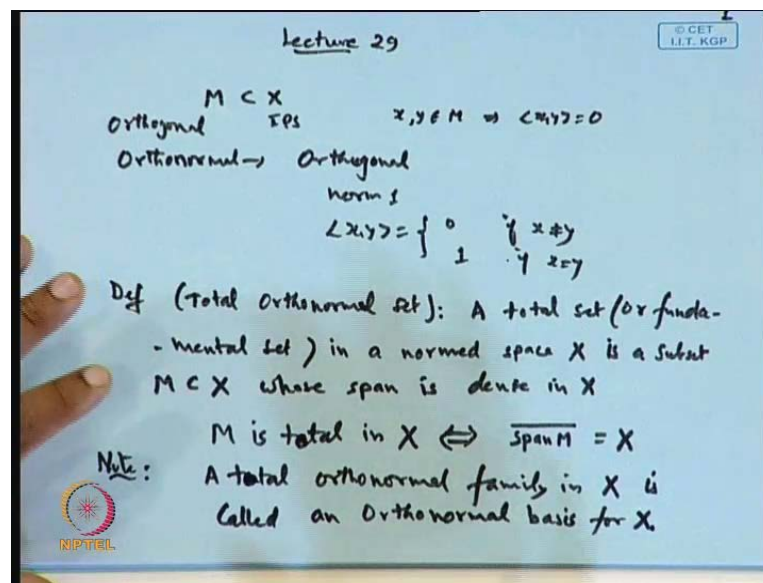 Lecture 29
© CET
I.I.T. KGP
M ⊂ X
Orthogonal IPS x, y ∈ M ⇒ <x,y> = 0
Orthonormal → Orthogonal
norm 1
<x,y> = { 0 if x ≠ y
1 if x = y
Def (Total Orthonormal set): A total set (or funda-
-mental set) in a normed space X is a subset
M ⊂ X whose span is dense in X
M is total in X ⇔ \overline{span M} = X
Note:
A total orthonormal family in X is
Called an Orthonormal basis for X.
NPTEL